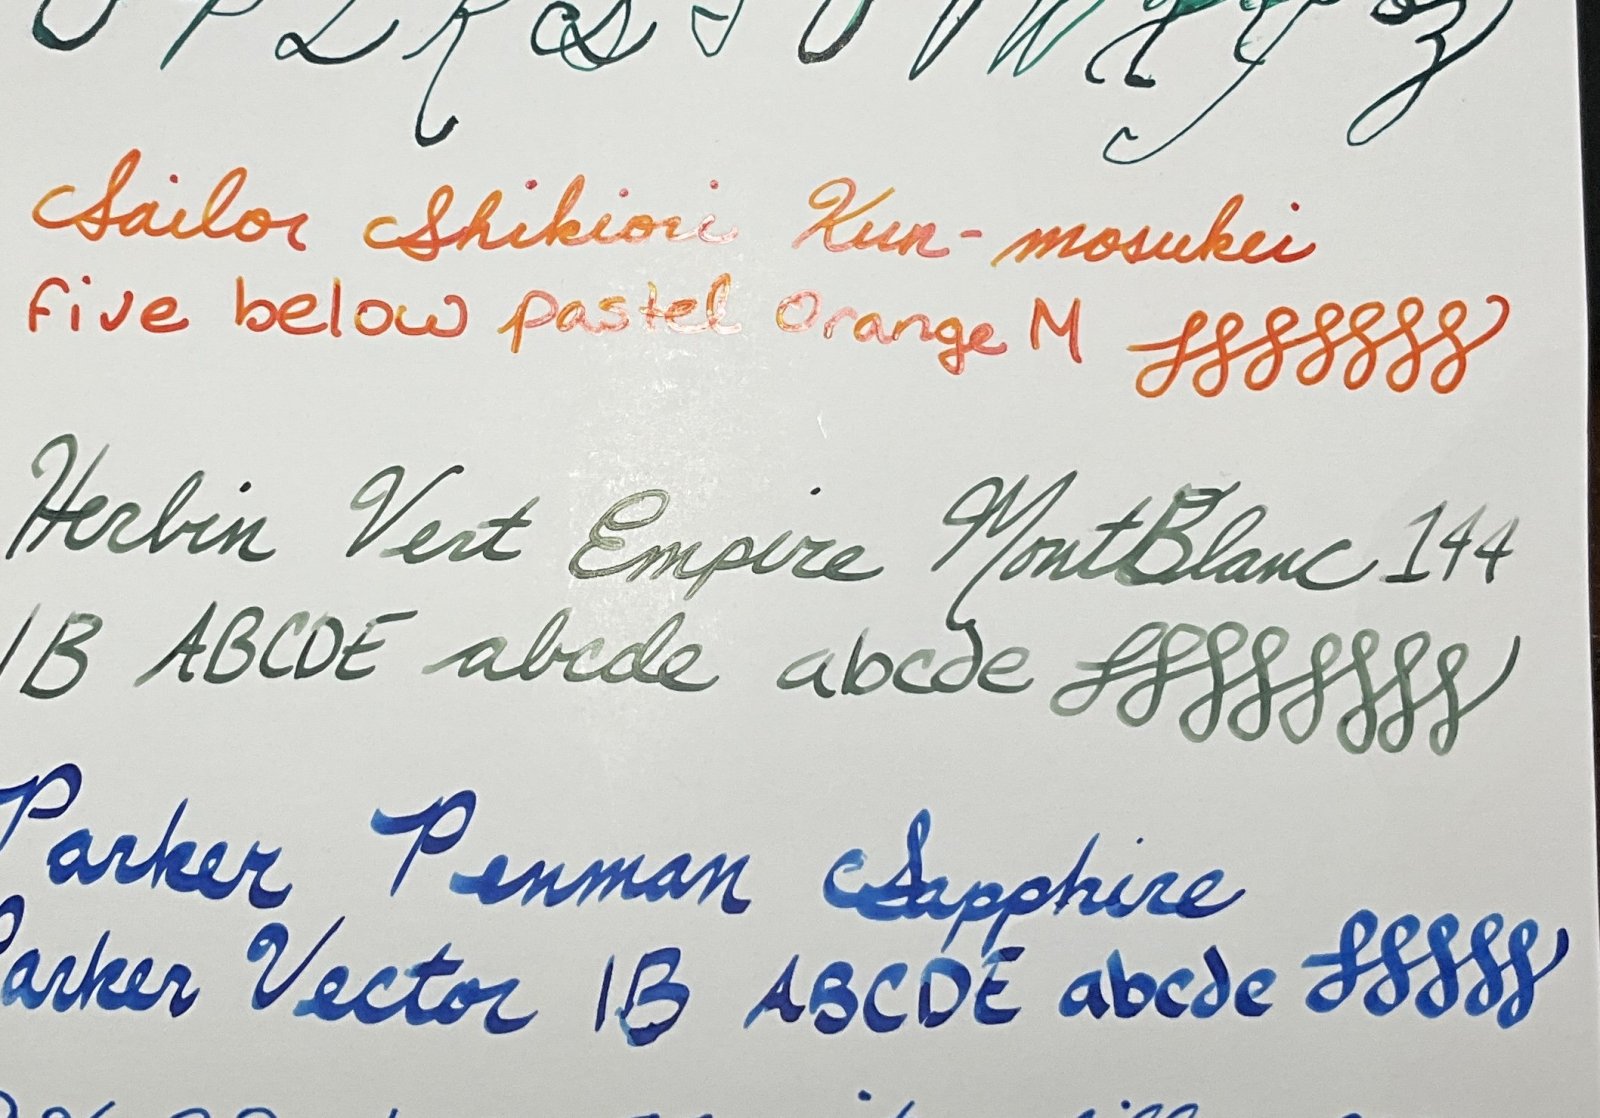 O P Q R S T U V W X Y Z
Sailor Shikiori Kun-mosukei
five below pastel Orange M
Herbin Vert Empire MontBlanc 144
IB ABCDE abcde abcde
Parker Penman Sapphire
Parker Vector IB ABCDE abcde